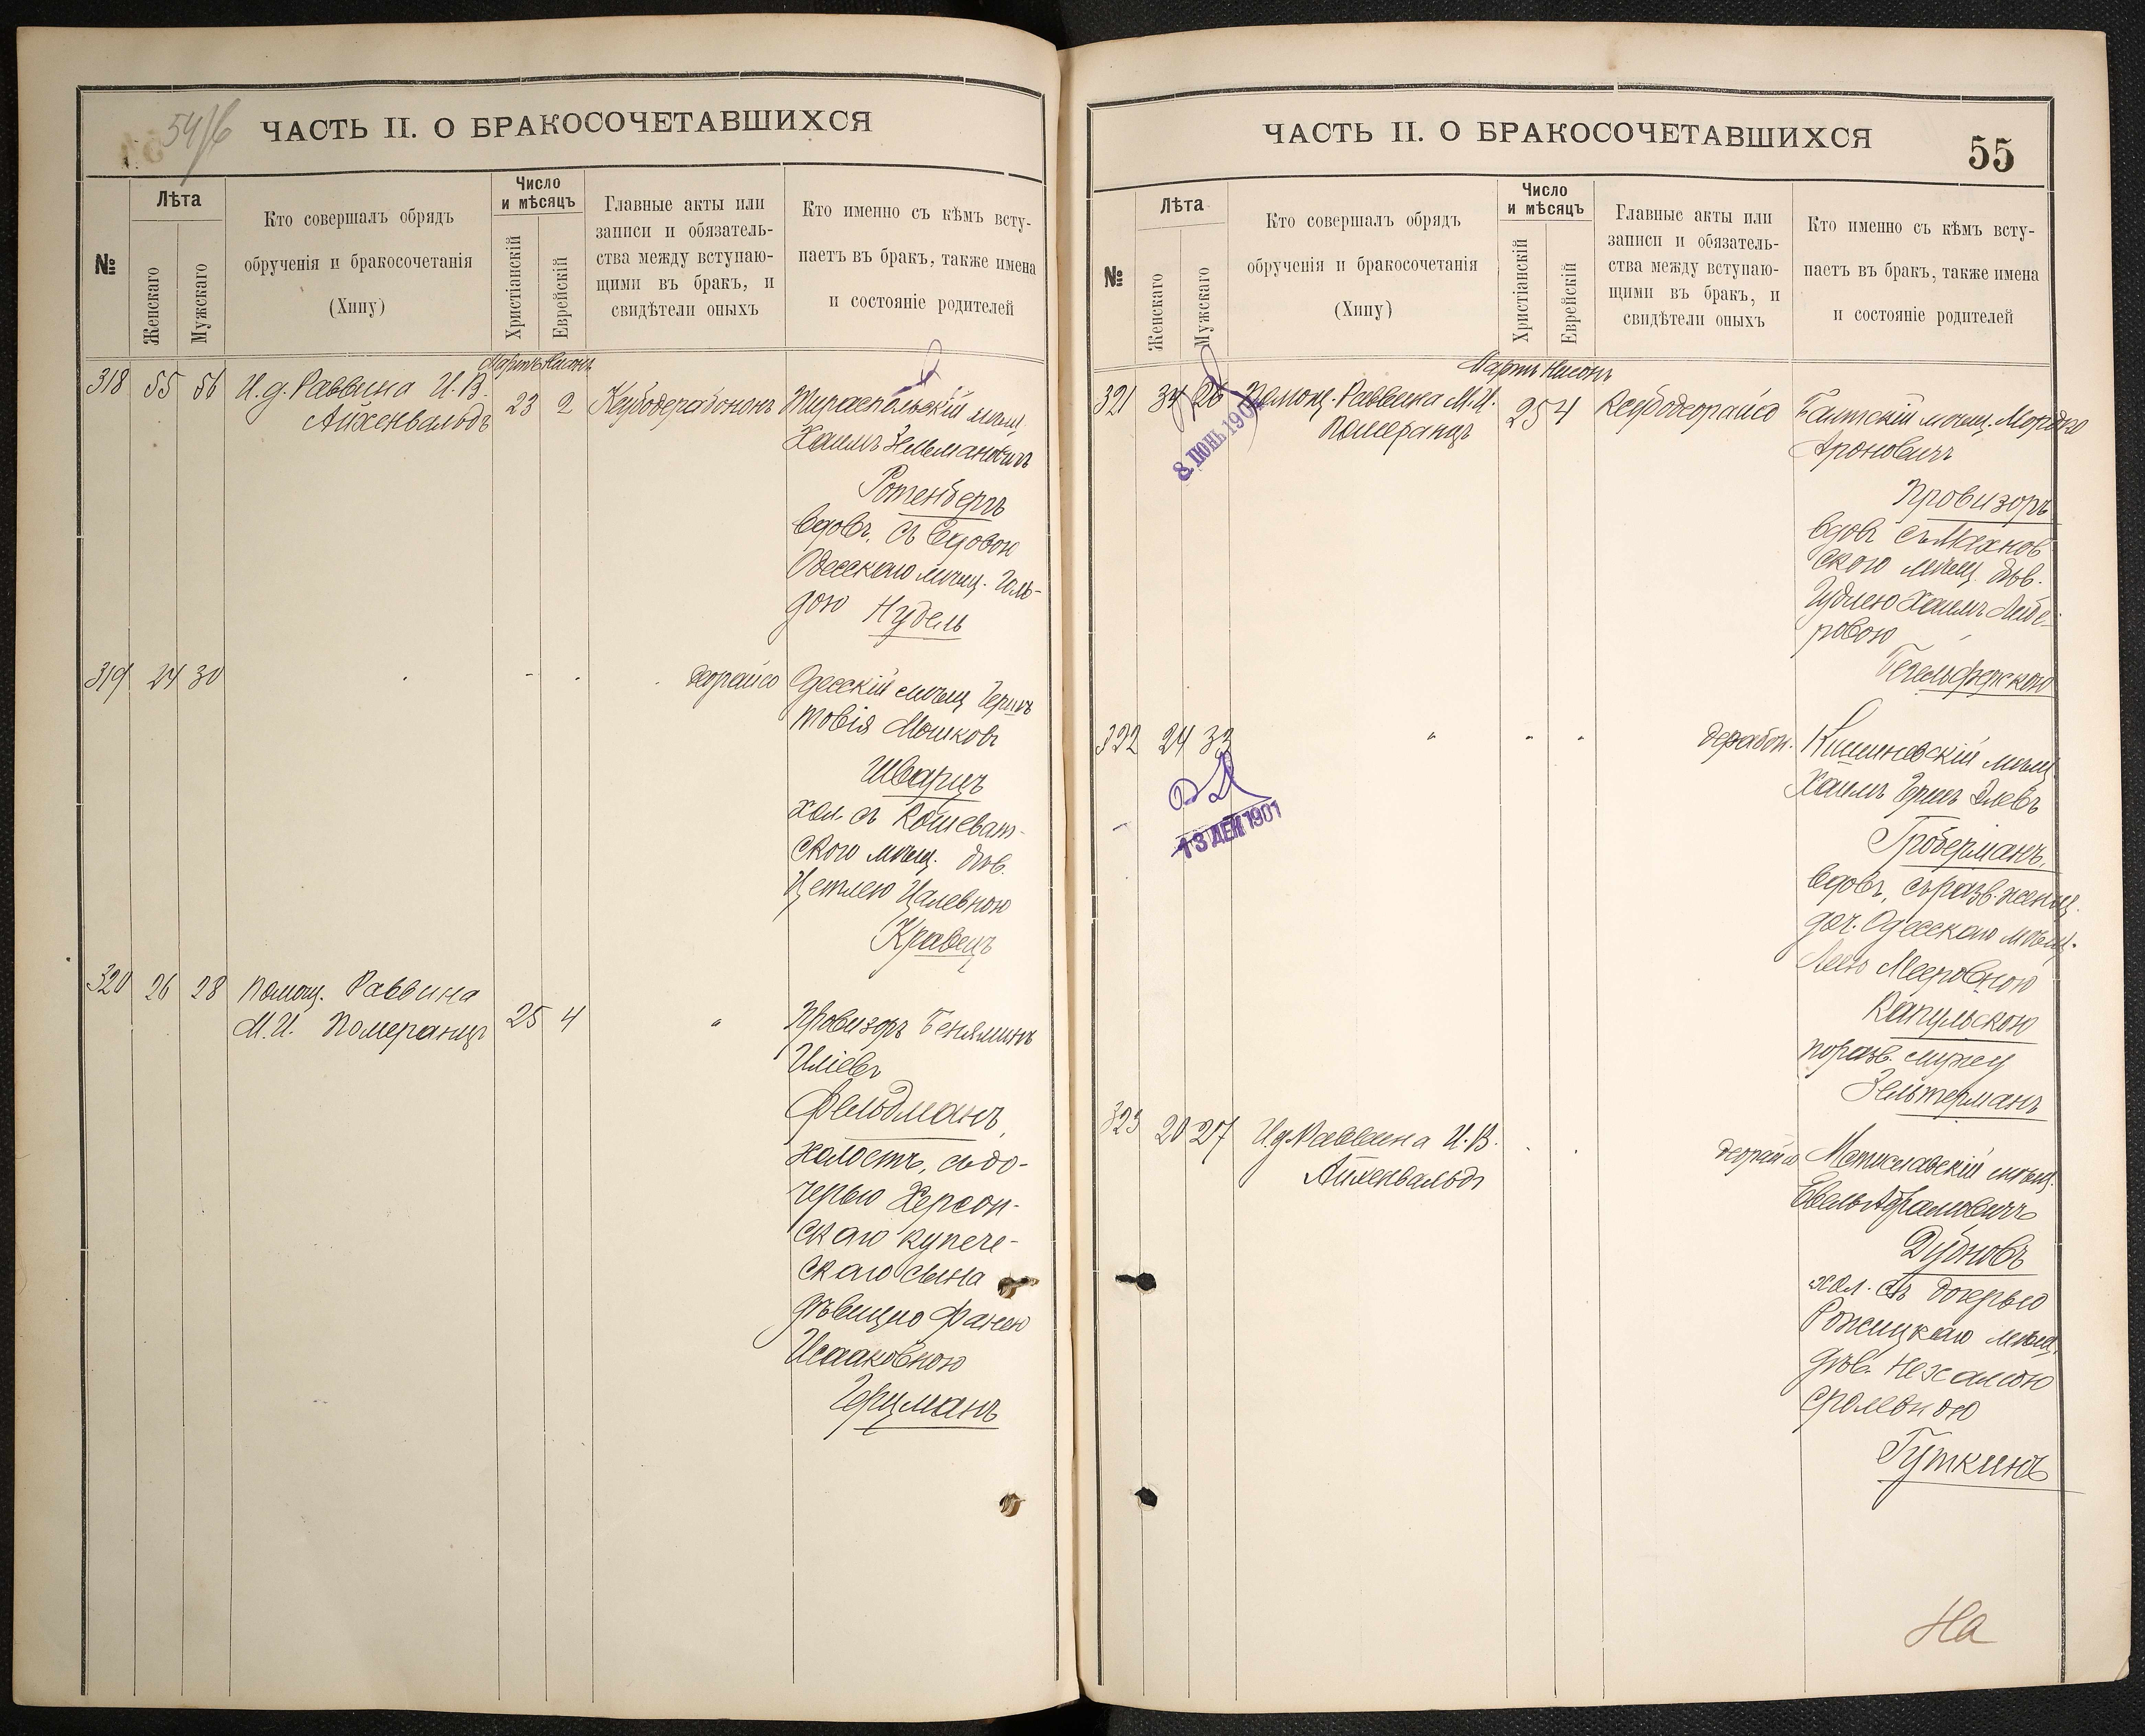 54/б
ЧАСТЬ II. О БРАКОСОЧЕТАВШИХСЯ
№
Лѣта
Женскаго
Мужскаго
Кто совершалъ обрядъ
обрученія и бракосочетанія
(Хипу)
Число
и мѣсяцъ
Христіанскій
Еврейскій
Главные акты или
записи и обязатель-
ства между вступаю-
щими въ бракъ, и
свидѣтели оныхъ
Кто именно съ кѣмъ всту-
паетъ въ бракъ, также имена
и состояніе родителей
Мартъ Нисонъ
318 55 56 И.д. Раввина И.В.
Айхенвальдъ
23 2 Ксубодерабононъ
Тираспольскій мѣщ.
Хаимъ Зельмановичъ
Ротенбергъ
вдовъ, съ вдовою
Одесскаго мѣщ. Голь-
дою Нудель
319 24 30 деорайсо
Одесскій мѣщ. Гершъ
Товія Мошковъ
Шварцъ
хол. съ Кошеват-
скою мѣщ. дѣв.
Цетлею Цалевною
Кравецъ
320 26 28 Помощ. Раввина
М.И. Померанцъ
25 4 "
Провизоръ Беняминъ
Иліевъ
Фельдманъ,
холостъ, съ до-
черью Херсон-
скаго купече-
скаго сына
дѣвицею Фанею
Исааковною
Герцманъ
ЧАСТЬ II. О БРАКОСОЧЕТАВШИХСЯ
55
№
Лѣта
Женскаго
Мужскаго
Кто совершалъ обрядъ
обрученія и бракосочетанія
(Хипу)
Число
и мѣсяцъ
Христіанскій
Еврейскій
Главные акты или
записи и обязатель-
ства между вступаю-
щими въ бракъ, и
свидѣтели оныхъ
Кто именно съ кѣмъ всту-
паетъ въ бракъ, также имена
и состояніе родителей
Мартъ Нисонъ
321 34 26 Помощ. Раввина М.И.
Померанцъ
8 ІЮНЬ
25 4 Ксубодеорайсо
Балтскій мѣщ. Мордко
Ароновичъ
Провизоръ
вдовъ
скою мѣщ. дѣв.
Гудлею Хаимъ Лейбе-
ровою
322 24 33 " " " дерабон.
13 ДЕК 1901
Кишиневскій мѣщ.
Хаимъ Гершъ Элевъ
Гроберманъ,
вдовъ, съ разв. женщ.
доч. Одесскаго мѣщ.
Леею Мееровною
Капульскою
по разв. мужу
Зельтерманъ
323 20 27 И.д. Раввина И.В.
Айхенвальдъ
деорайсо
Мстиславскій мѣщ.
Евель Абрамовичъ
Дубновъ
хол. съ дочерью
мѣщ.
дѣв. Нехамою
Сролевною
Гуткинъ
На